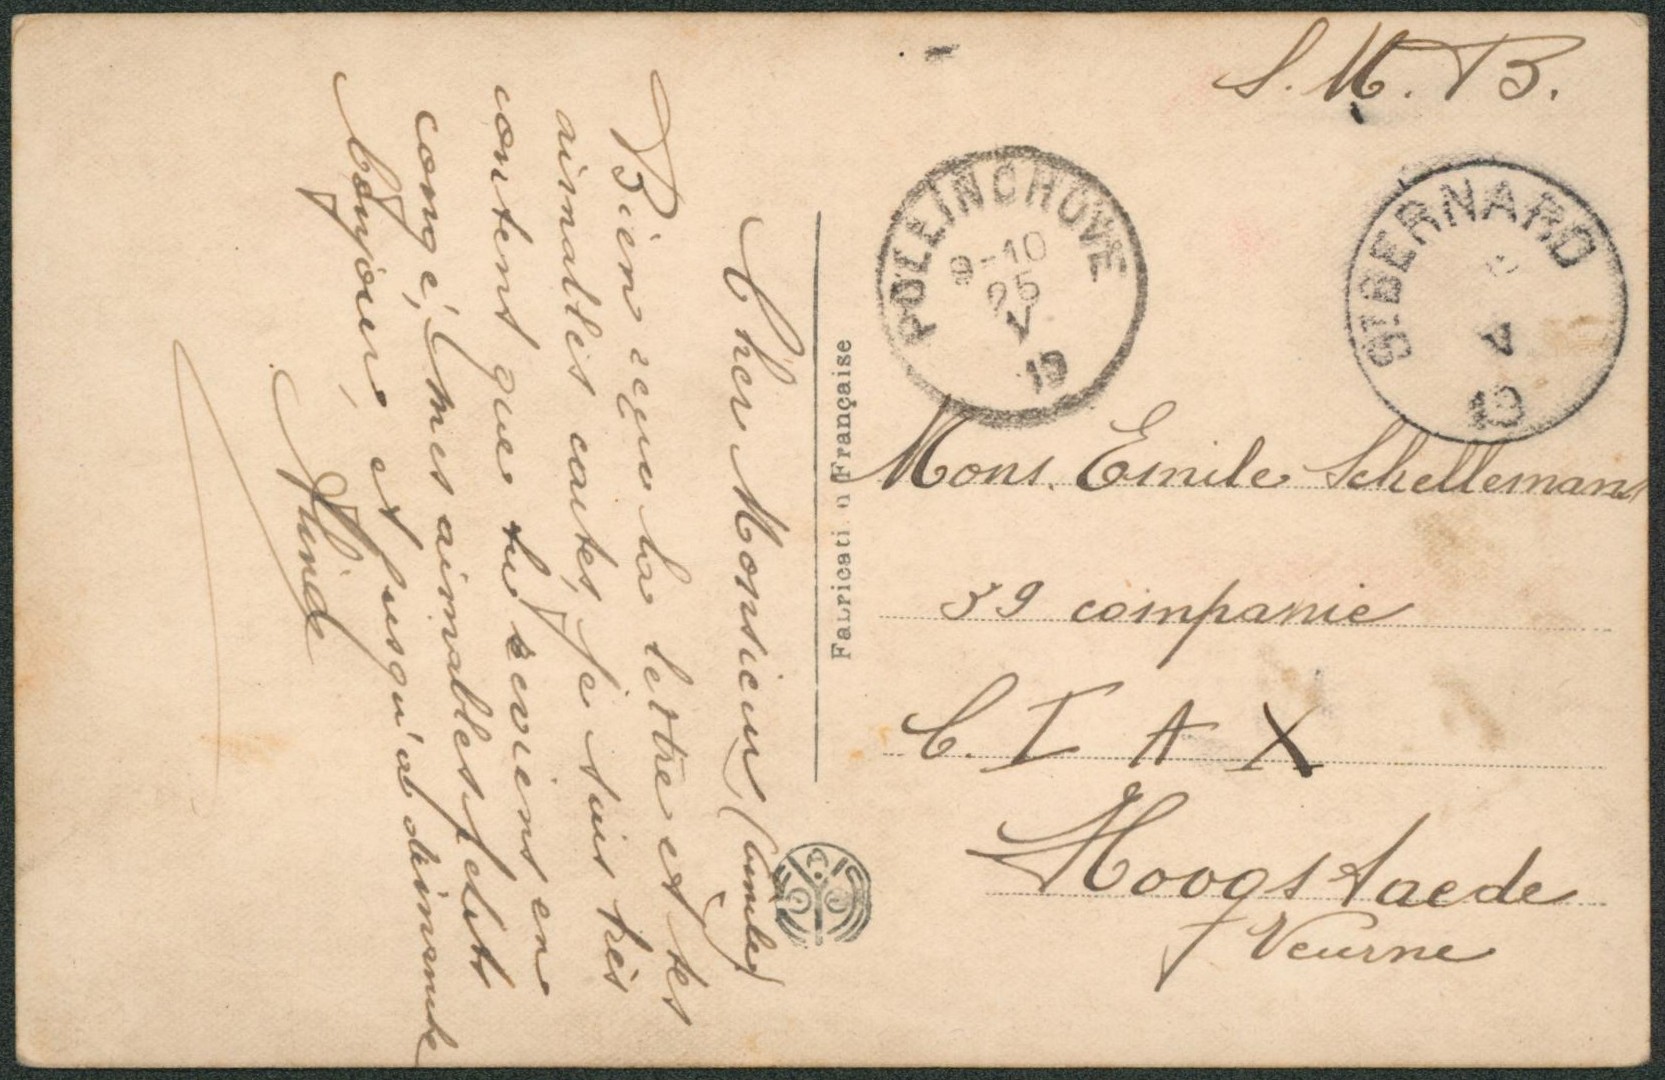 S. M. B.
POLLINCHOVE
9-10
25
V
19
ST. BERNARD
V
19
Mons. Emile Schellemans
39 companie
C. I A X
Hoogstaede
Veurne
Fabrication Française
Cher Monsieur
Bien reçu la lettre et tes
aimables cartes, je suis très
content que tu reviens en
congé, mes aimables petits
bonjour, et jusqu'a dimanche